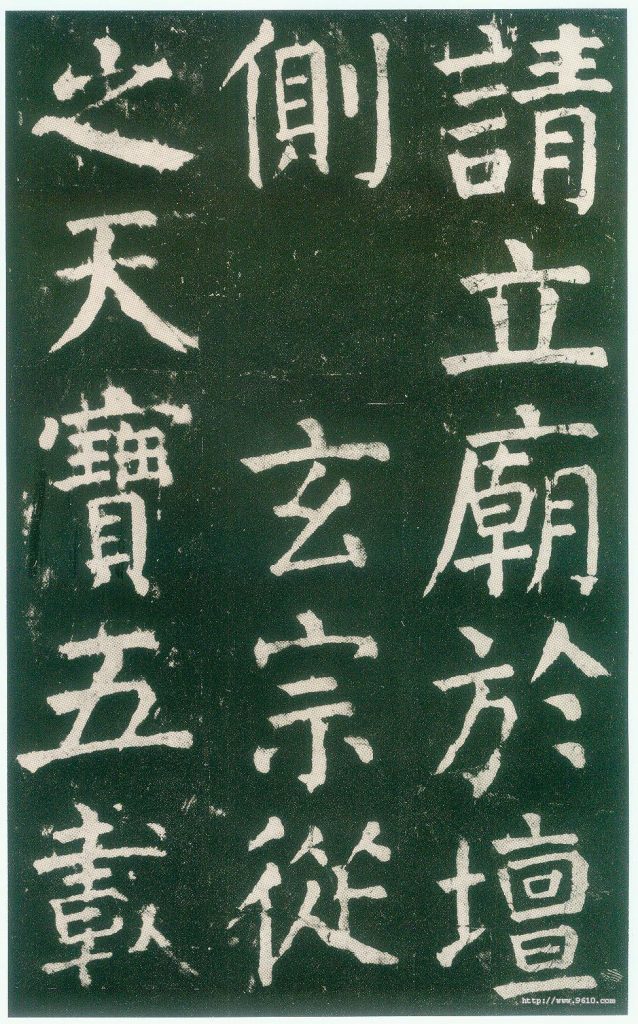 請立廟於壇
側 玄宗從
之天寶五載
http://www.9610.com